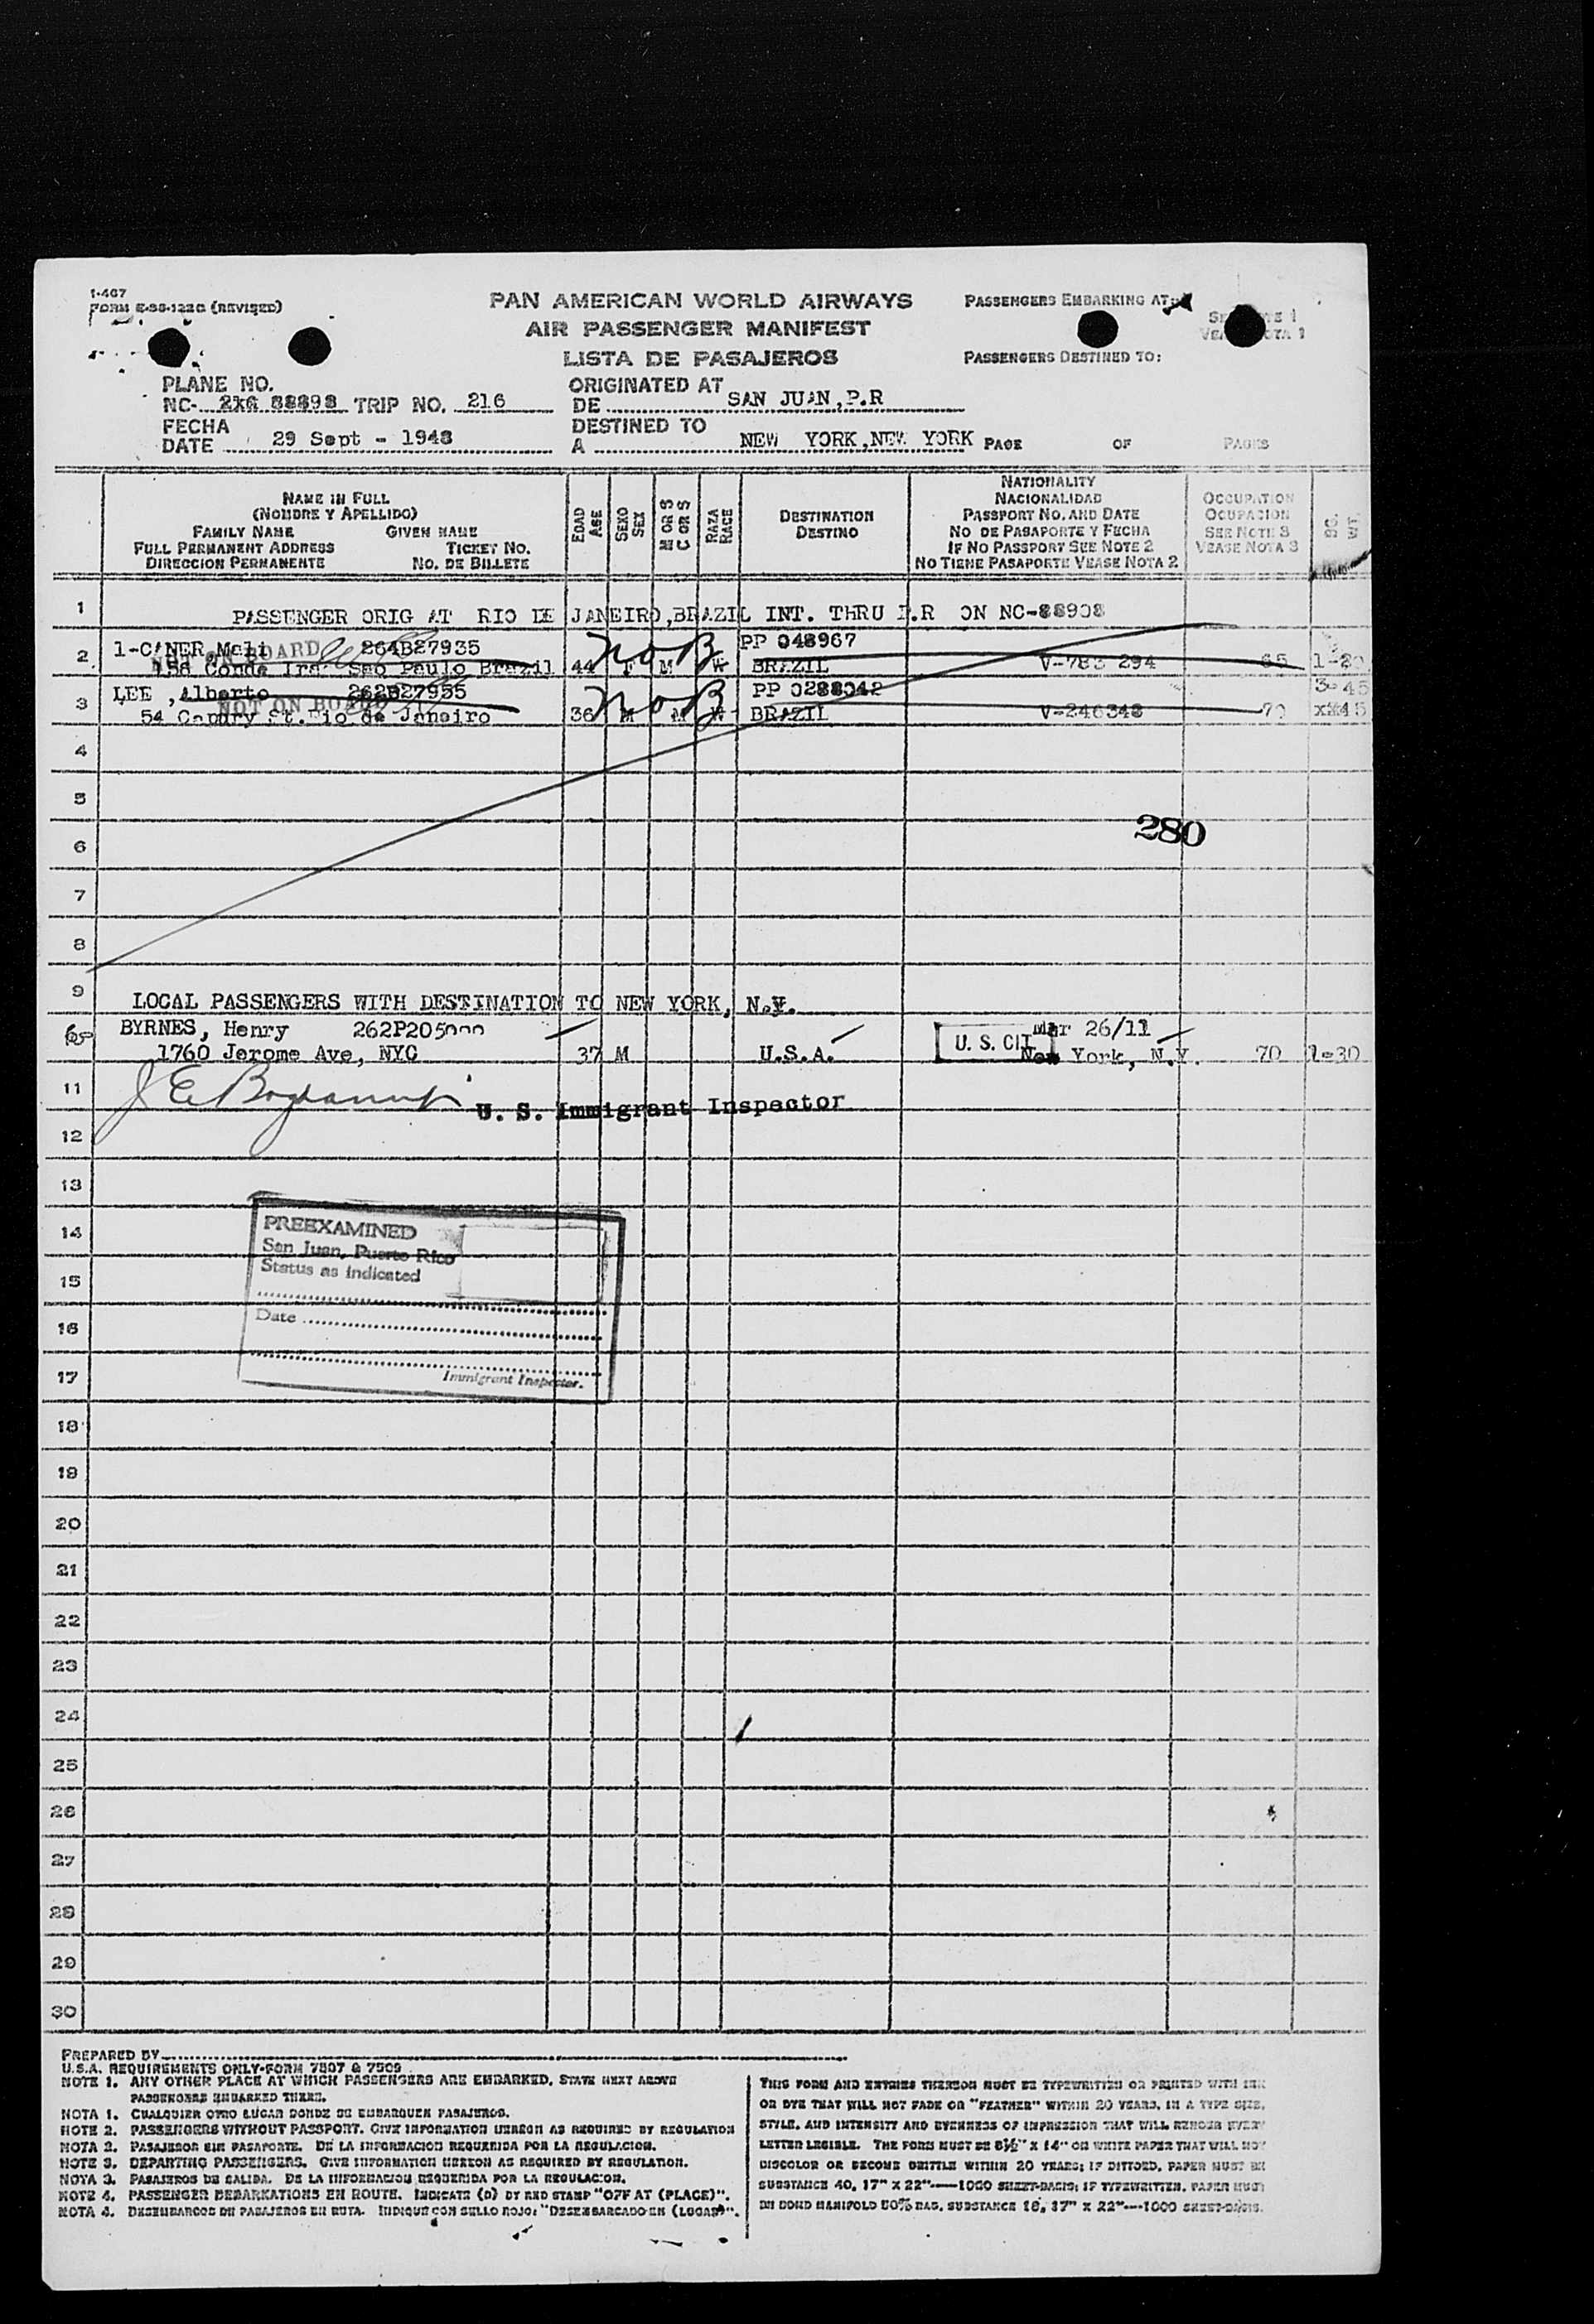 I-467
FORM E-36-122C (REVISED)
PAN AMERICAN WORLD AIRWAYS
AIR PASSENGER MANIFEST
LISTA DE PASAJEROS
PASSENGERS EMBARKING AT:
PASSENGERS DESTINED TO:
PLANE NO.
NC- 88898 TRIP NO. 216
ORIGINATED AT
DE SAN JUAN,P.R
FECHA
DATE 29 Sept - 1948
DESTINED TO
A NEW YORK,NEW YORK PAGE OF PAGES
NAME IN FULL
(NOMBRE Y APELLIDO)
FAMILY NAME GIVEN NAME
FULL PERMANENT ADDRESS TICKET NO.
DIRECCION PERMANENTE NO. DE BILLETE
EDAD
AGE
SEXO
SEX
M OR S
C OR S
RAZA
RACE
DESTINATION
DESTINO
NATIONALITY
NACIONALIDAD
PASSPORT NO. AND DATE
NO DE PASAPORTE Y FECHA
IF NO PASSPORT SEE NOTE 2
NO TIENE PASAPORTE VEASE NOTA 2
OCCUPATION
OCUPACION
SEE NOTE 3
VEASE NOTA 3
BG.
WT.
1 PASSENGER ORIG AT RIO DE JANEIRO,BRAZIL INT. THRU P.R ON NC-88908
2 1-CANER Mali 264B27935 PP 048967
NOT ON BOARD
158 Conde Sao Paulo Brazil 44 F M W BRAZIL V-783 294 65 1-20
NOB
3 LEE ,Alberto 262B27955 PP 0288042 3-45
NOT ON BOARD
54 St. Rio de Janeiro 36 M M W BRAZIL V-246348 70
NOB
4
5
6 280
7
8
9 LOCAL PASSENGERS WITH DESTINATION TO NEW YORK, N.Y.
BYRNES, Henry 262P205 Mar 26/11
1760 Jerome Ave, NYC 37 M U.S.A. U. S. CIT New York, N.Y. 70 1-30
11
U. S. Immigrant Inspector
12
13
14 PREEXAMINED
San Juan, Puerto Rico
15 Status as indicated
16 Date
17 Immigrant Inspector.
18
19
20
21
22
23
24
25
26
27
28
29
30
PREPARED BY
U.S.A. REQUIREMENTS ONLY-FORM 7507 & 7509
NOTE 1. ANY OTHER PLACE AT WHICH PASSENGERS ARE EMBARKED, STATE NEXT ABOVE
PASSENGERS EMBARKED THERE.
NOTA 1. CUALQUIER OTRO LUGAR DONDE SE EMBARQUEN PASAJEROS.
NOTE 2. PASSENGERS WITHOUT PASSPORT. GIVE INFORMATION HEREON AS REQUIRED BY REGULATION
NOTA 2. PASAJEROS SIN PASAPORTE. DE LA INFORMACION REQUERIDA POR LA REGULACION.
NOTE 3. DEPARTING PASSENGERS. GIVE INFORMATION HEREON AS REQUIRED BY REGULATION.
NOTA 3. PASAJEROS DE SALIDA. DE LA INFORMACION REQUERIDA POR LA REGULACION.
NOTE 4. PASSENGER DEBARKATIONS EN ROUTE. INDICATE (D) BY RED STAMP "OFF AT (PLACE)".
NOTA 4. DESEMBARCOS DE PASAJEROS EN RUTA. INDIQUE CON SELLO ROJO: "DESEMBARCADO EN (LUGAR)".
THIS FORM AND ENTRIES THEREON MUST BE TYPEWRITTEN OR PRINTED WITH INK
OR DYE THAT WILL NOT FADE OR "FEATHER" WITHIN 20 YEARS, IN A TYPE SIZE,
STYLE, AND INTENSITY AND EVENNESS OF IMPRESSION THAT WILL RENDER EVERY
LETTER LEGIBLE. THE FORM MUST BE 8½" X 14" ON WHITE PAPER THAT WILL NOT
DISCOLOR OR BECOME BRITTLE WITHIN 20 YEARS; IF DITTOED, PAPER MUST BE
SUBSTANCE 40, 17" X 22"—1000 SHEET-BASIS; IF TYPEWRITTEN, PAPER MUST
BE BOND MANIFOLD 50% RAG, SUBSTANCE 16, 17" X 22"—1000 SHEET-BASIS.